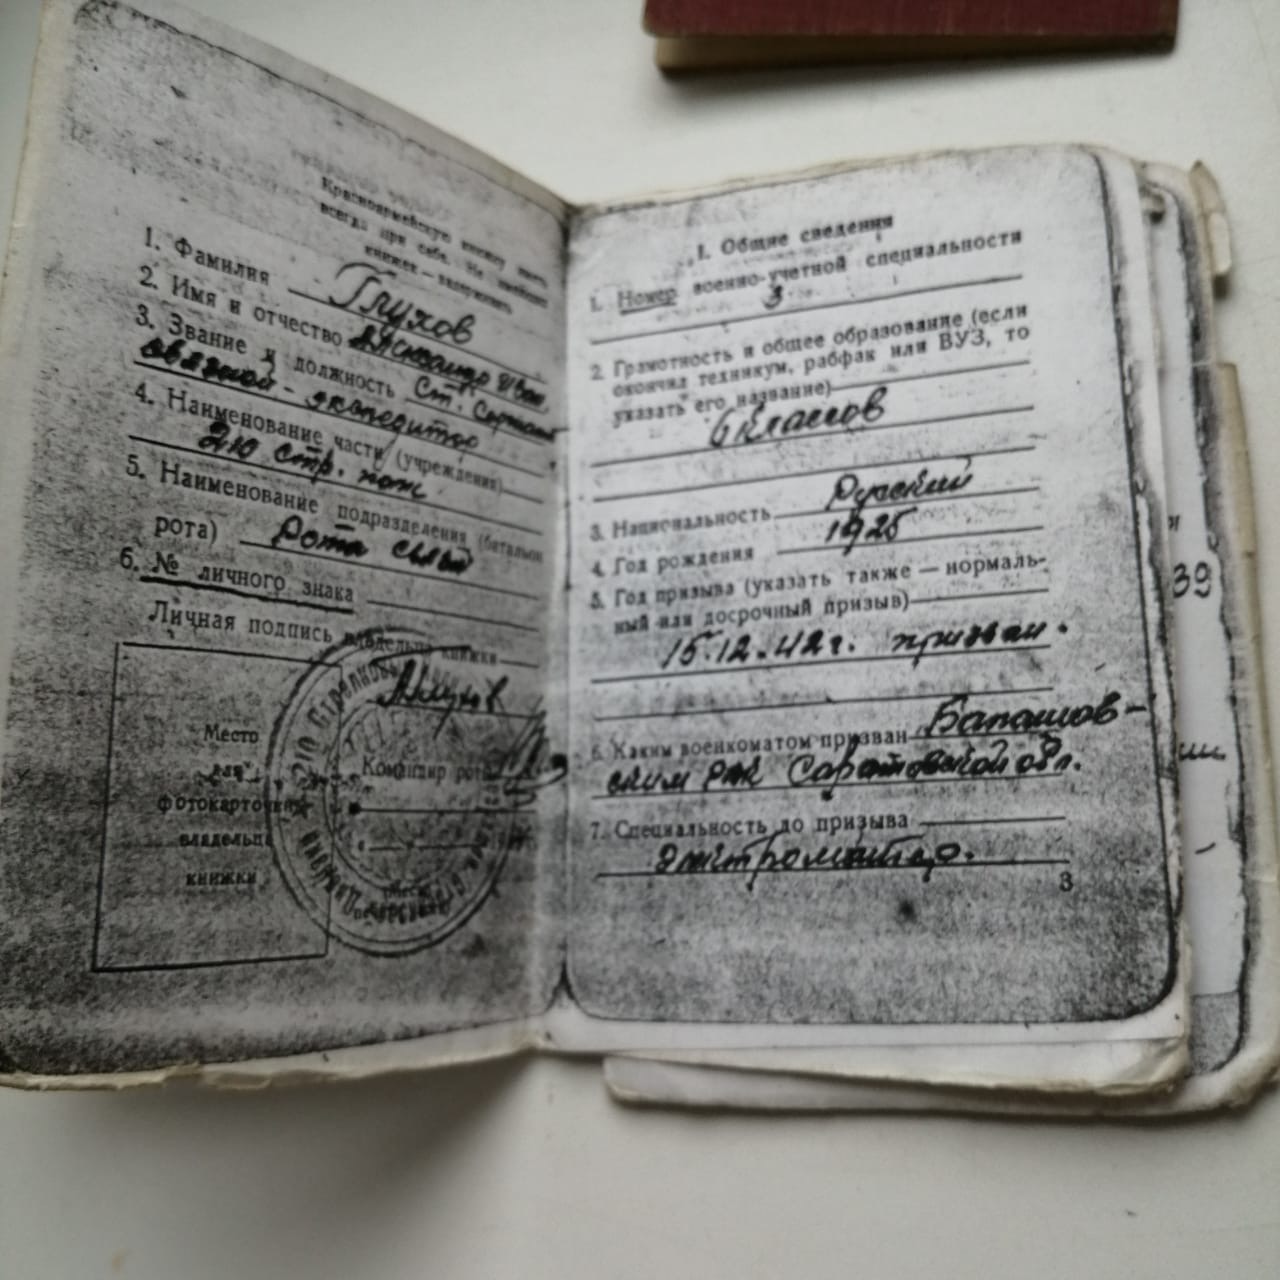 Красноармейскую книжку иметь
всегда при себе. Не имеющих
книжек — задерживать
1. Фамилия Глухов
2. Имя и отчество Александр Иван.
3. Звание и должность Ст. Сержант
связной - экспедитор
4. Наименование части (учреждения)
210 стр. полк.
5. Наименование подразделения (батальон
рота) Рота связи
6. № личного знака
Личная подпись владельца книжки
Глухов
Место
для
фотокарточки
владельца
книжки
Командир роты
210 Стрелковый
I. Общие сведения
1. Номер военно-учетной специальности
3
2. Грамотность и общее образование (если
окончил техникум, рабфак или ВУЗ, то
указать его название)
6 классов
3. Национальность Русский
4. Год рождения 1925
5. Год призыва (указать также — нормаль-
ный или досрочный призыв)
15.12.42 г. призван.
6. Каким военкоматом призван Балашов-
ским РВК Саратовской обл.
7. Специальность до призыва
электромонтер.
3
39